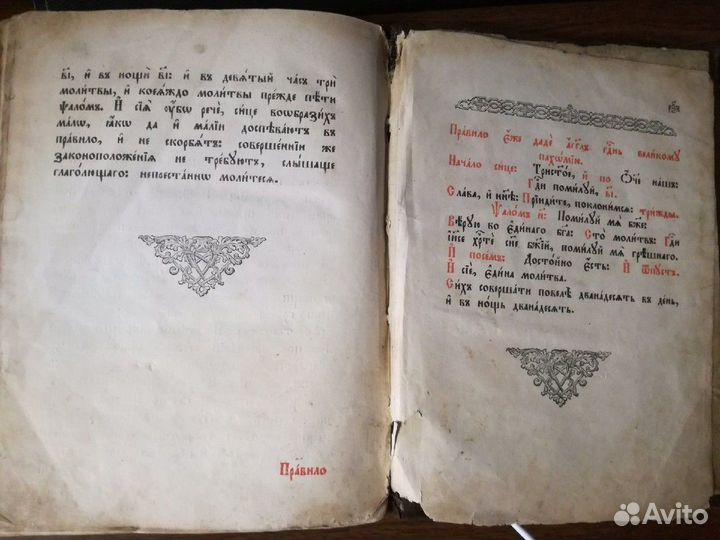 в҃і, и҆ въ нощѝ в҃і: и҆ въ девѧ́тый часъ трѝ
моли̑твы, и҆ коеѧ́ждо моли́твы пре́жде пѣ́ти
ѱало́мъ. И҆ сїѧ̑ ᲂу҆́бѡ речѐ, си́це воѡбрази́хъ
ма́лѡ, ꙗ҆́кѡ да и҆ ма́лїи доспѣва́ютъ въ
пра́вило, и҆ не скорбѧ́тъ: соверше́ннїи же
законоположе́нїѧ не тре́буютъ, слы́шаще
глаго́лющаго: непреста́ннѡ моли́тесѧ.
Пра́вило
Пра́вило є҆́же дадѐ а҆́гг҃лъ гдⷭ҇нь вели́кому
пахѡ́мїю.
Нача́ло си́це: Трист҃о́е, и҆ по Ѻ҆́ч҃е на́шъ:
Гдⷭ҇и поми́луй, в҃і.
Сла́ва, и҆ ны́нѣ: Прїиди́те, поклони́мсѧ: три́жды.
Ѱало́мъ н҃: Поми́луй мѧ̀ бж҃е
Вѣ́рую во є҆ди́наго бг҃а: Сто̀ моли́твъ: Гдⷭ҇и
і҆и҃се хрⷭ҇тѐ сн҃е бж҃їй, поми́луй мѧ̀ грѣ́шнаго.
И҆ посе́мъ: Досто́йно є҆́сть: И҆ ѿпу́стъ.
И҆ сїѐ, є҆ди́на моли́тва.
Си́хъ соверша́ти повелѣ̀ двана́десѧть въ де́нь,
и҆ въ но́щь двана́десѧть.
Avito